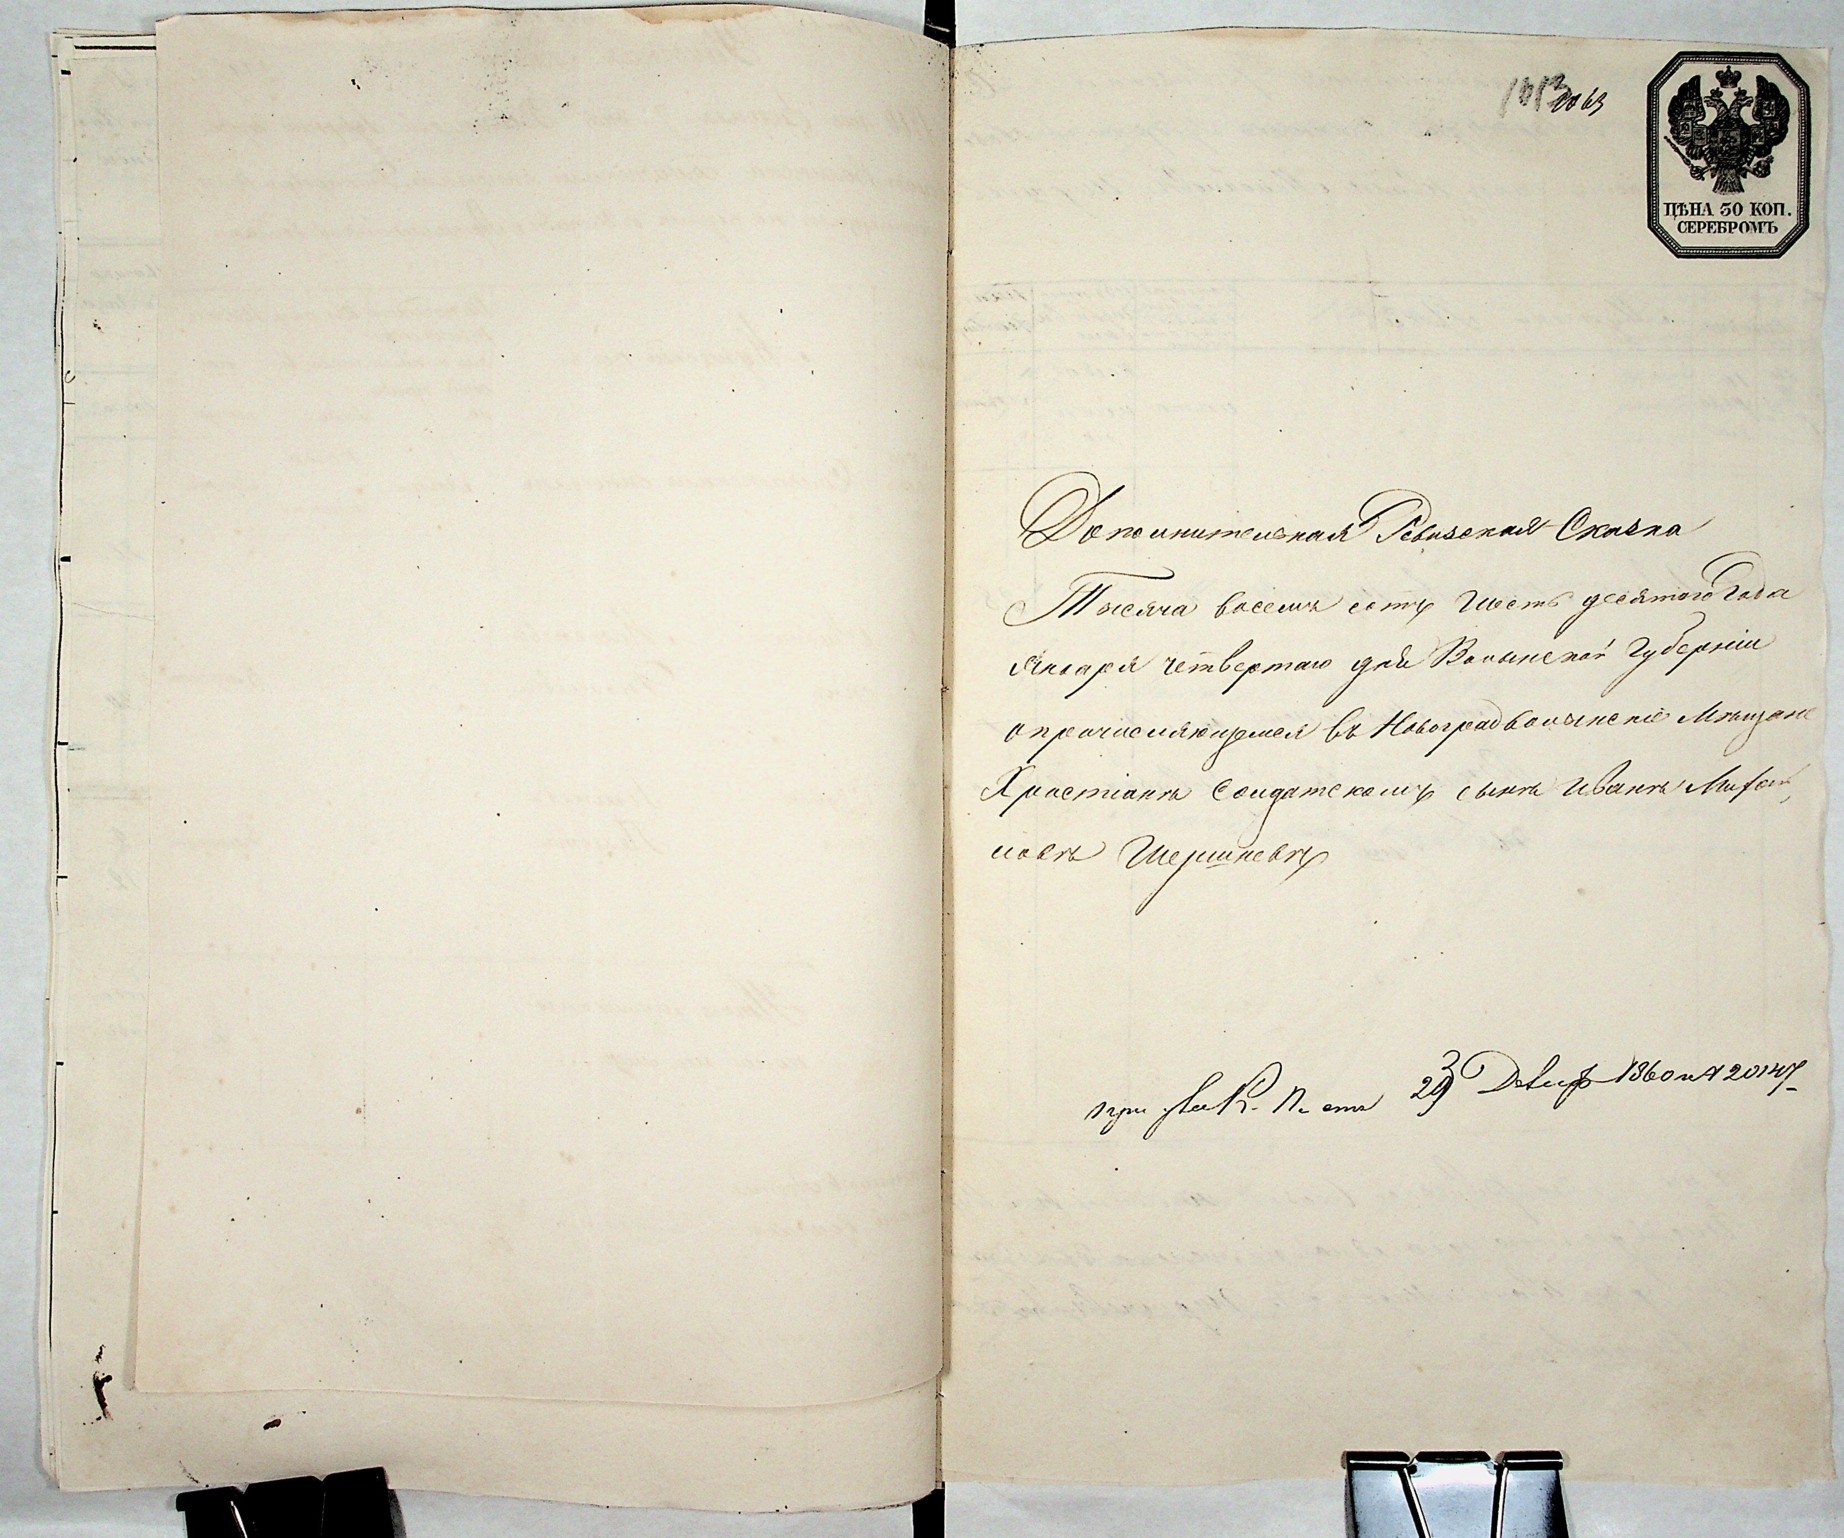 1013 1063
ЦѢНА 30 КОП.
СЕРЕБРОМЪ
Дополнительная Ревизская Сказка
Тысяча восемь сотъ шесть десятого Года
Января четвертаго дня Волынской Губерніи
о причисляющемся въ Новоградволынскіе Мѣщане
Христіанъ Солдатскомъ сынѣ Иванѣ Мифай,
ловѣ Шершневѣ
при
29 Декаб 1860 № 20147